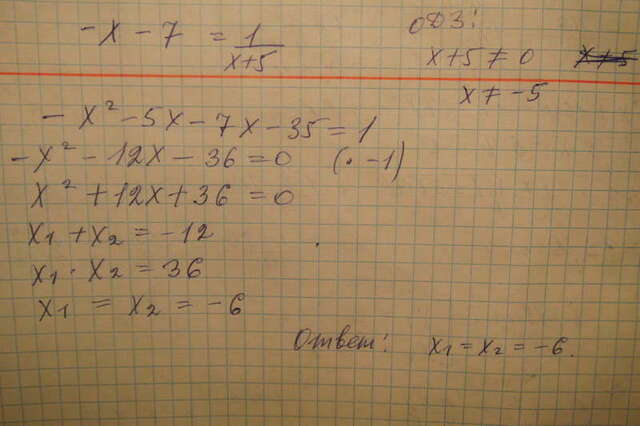 -x - 7 = 1/(x+5)
ОДЗ:
x+5 ≠ 0
x ≠ -5
-x² - 5x - 7x - 35 = 1
-x² - 12x - 36 = 0 (· -1)
x² + 12x + 36 = 0
x₁ + x₂ = -12
x₁ · x₂ = 36
x₁ = x₂ = -6
Ответ: x₁ = x₂ = -6.